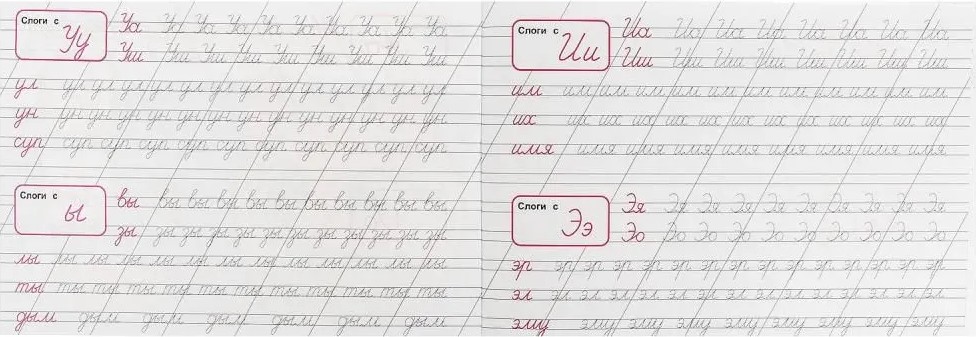 Слоги с Уу
Уа Уа Уа Уа Уа Уа Уа Уа Уа Уа
Уш Уш Уш Уш Уш Уш Уш Уш Уш
ул ул ул ул ул ул ул ул ул ул ул ул ул ул
ун ун ун ун ун ун ун ун ун ун ун ун ун ун
суп суп суп суп суп суп суп суп суп суп суп
Слоги с ы
вы вы вы вы вы вы вы вы вы вы вы
зы зы зы зы зы зы зы зы зы зы зы зы
лы лы лы лы лы лы лы лы лы лы лы лы лы
ты ты ты ты ты ты ты ты ты ты ты ты
дым дым дым дым дым дым дым
Слоги с Ии
Иа Иа Иа Иа Иа Иа Иа Иа
Иш Иш Иш Иш Иш Иш Иш Иш
им им им им им им им им им им им им
их их их их их их их их их их
имя имя имя имя имя имя имя имя имя
Слоги с Ээ
Эя Эя Эя Эя Эя Эя Эя Эя Эя Эя
Эо Эо Эо Эо Эо Эо Эо Эо Эо Эо
эр эр эр эр эр эр эр эр эр эр эр эр эр эр эр
эл эл эл эл эл эл эл эл эл эл эл эл эл эл эл
эму эму эму эму эму эму эму эму эму